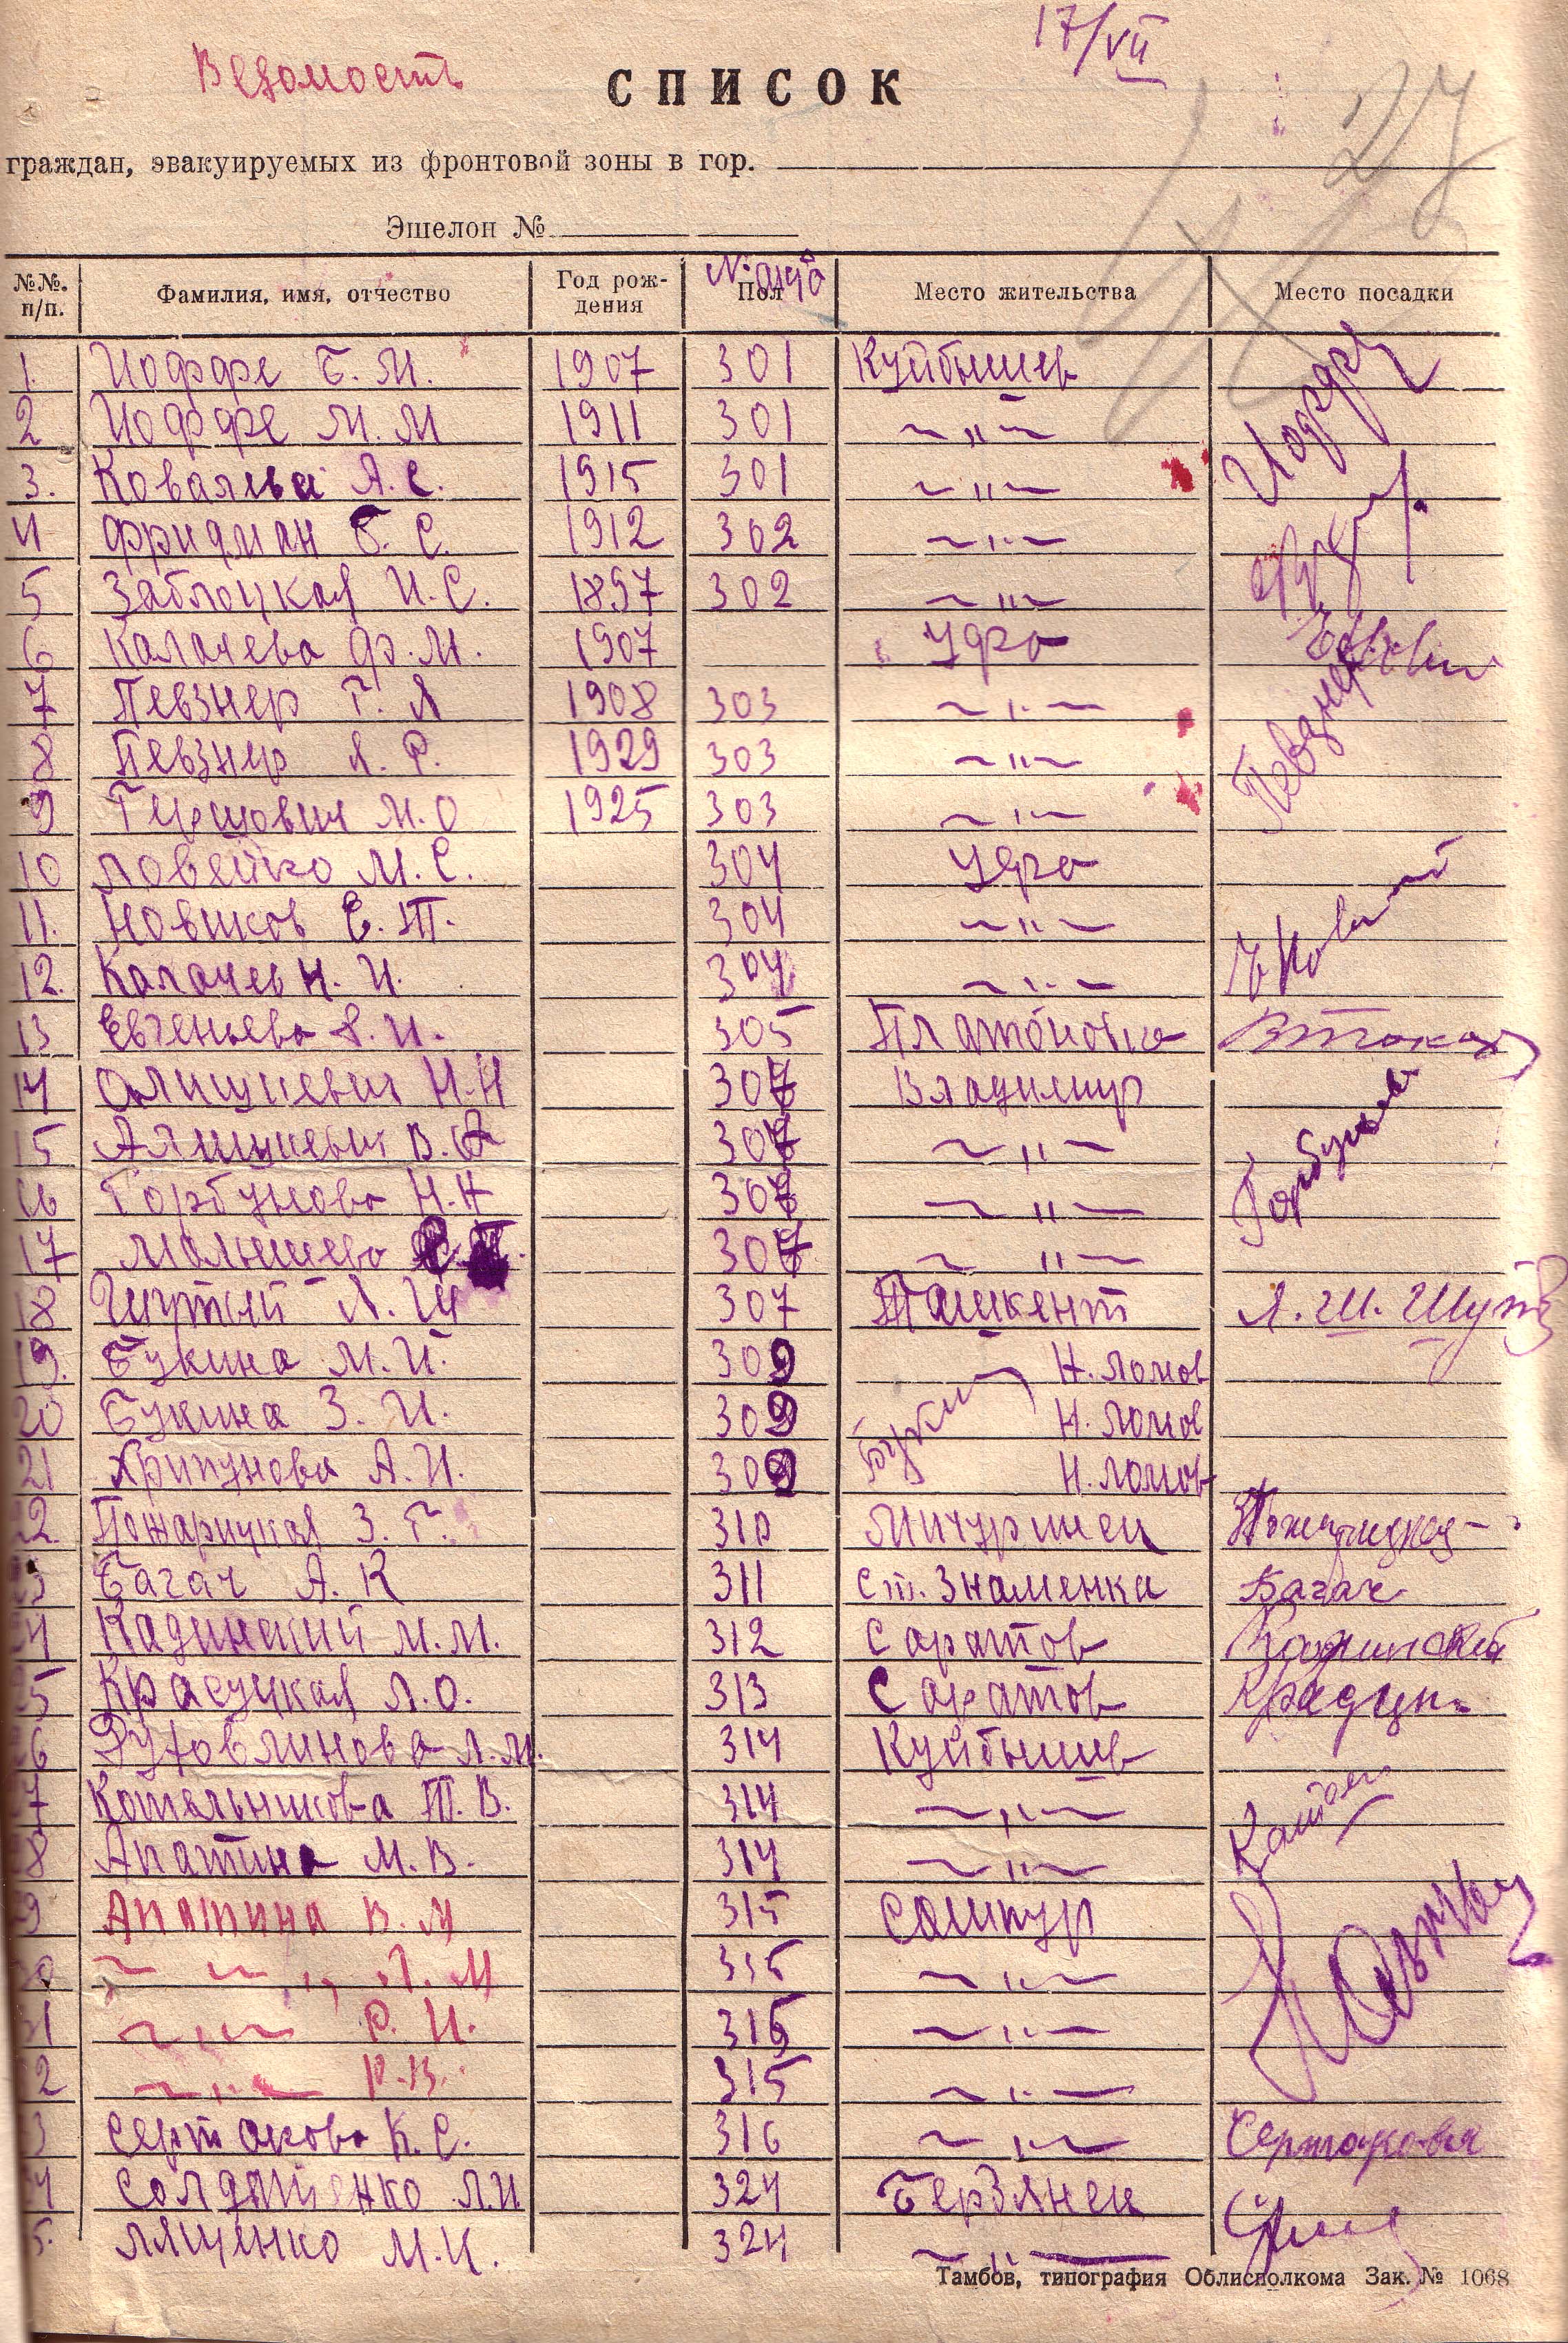 17/VII
Ведомость
СПИСОК
27
граждан, эвакуируемых из фронтовой зоны в гор.
Эшелон №
№№. п/п. Фамилия, имя, отчество Год рождения Пол Место жительства Место посадки
1. Иоффе Б. М. 1907 301 Куйбышев Иоффе
2 Иоффе М. М 1911 301 — " —
3. Ковалева А. С. 1915 301 — " —
4 Фридман Б. С. 1912 302 — " —
5 Заблоцкая И. С. 1897 302 — " —
6 Калачева Ф. М. 1907 Уфа
7 Певзнер Г. Я 1908 303 — " — Певзнер
8 Певзнер Я. Р. 1929 303 — " —
9 Гершович М. О 1925 303 — " —
10 Ловейко М. С. 304 Уфа
11. Новиков Е. Т. 304 — " —
12. Калачев Н. И. 304 — " —
13 Евгеньева А. И. 305 Платоновка
14 Олишкевич Н. Н 307 Владимир
15 Алишкевич В. А 307 — " —
16 Горбунова Н. Н 307 — " — Горбунова
17 Малышева 307 — " —
18 Шуткий Л. Ш 307 Ташкент Л. Ш. Шутк
19. Букина М. И. 309 Н. Ломов
20 Букина З. И. 309 Букин Н. Ломов
21 Хрипунова А. И. 309 Н. Ломов
2. Пожарицкая З. Г. 310 Мичуринск Пожарицкая
3 Багач А. К 311 ст. Знаменка Багач
4 Кадинский М. М. 312 Саратов Кадинский
5 Красуцкая Л. О. 313 Саратов
6 Л. М. 314 Куйбышев
7 Котельникова Т. В. 314 — " —
8 Апатина М. В. 314 — " —
9 Апатина В. М 315 Сампур
30 — " — Л. М 315 — " —
31 — " — Р. И. 315 — " —
2 — " — Р. В. 315 — " —
3 Сертакова К. С. 316 — " — Сертакова
4 Солдатенко Л. И 324 Бердянск
5. Лященко М. К. 324 — " —
Тамбов, типография Облисполкома Зак. № 1068